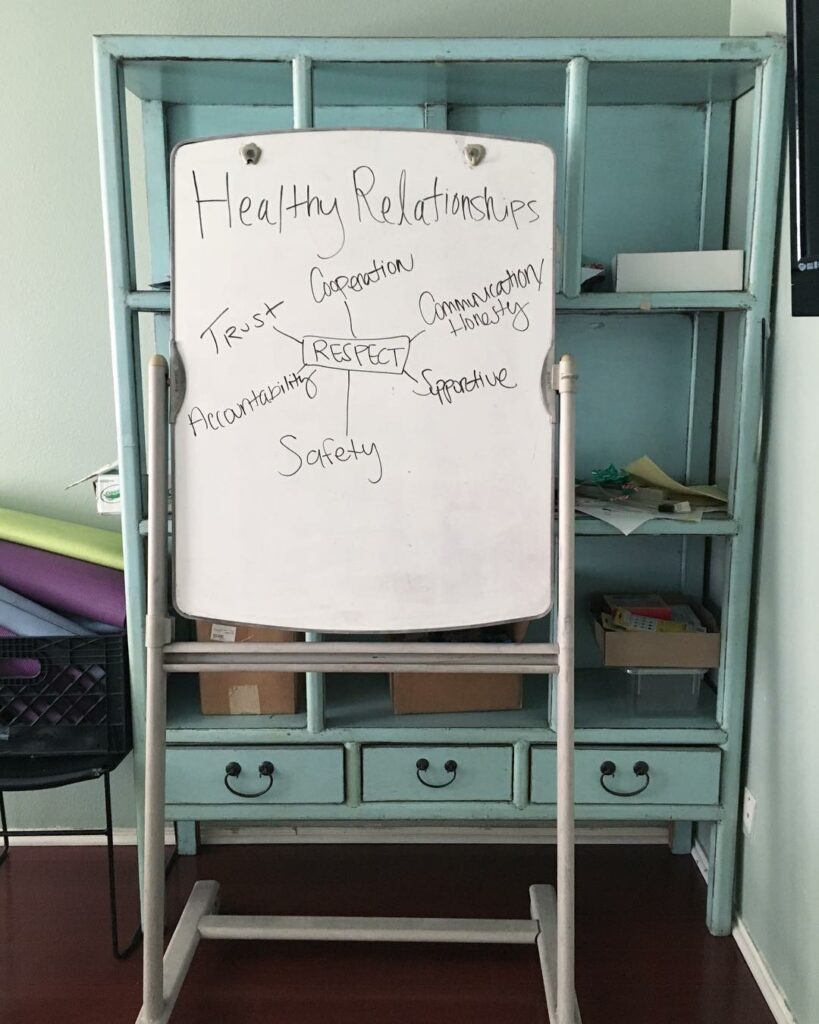 Healthy Relationships
Cooperation
Communication/
Honesty
Trust
RESPECT
Supportive
Accountability
Safety